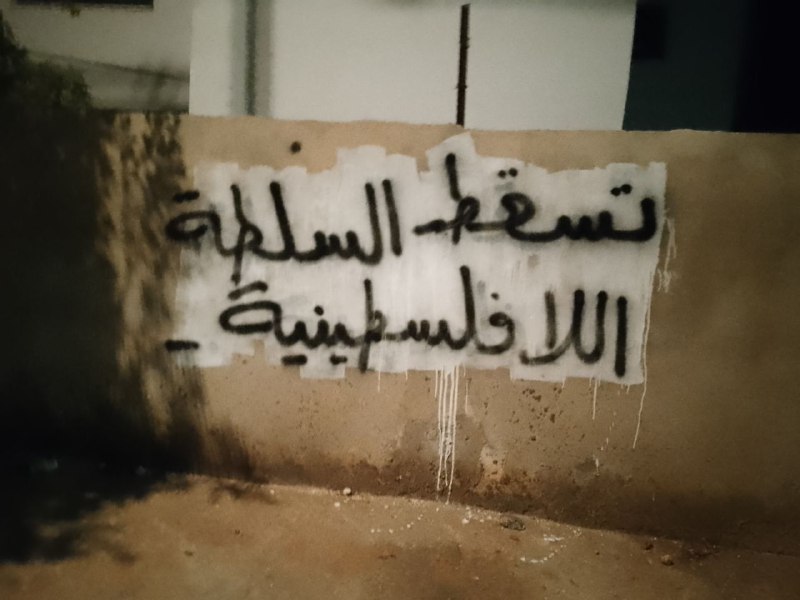 تسقط السلطة
اللا فلسطينية -